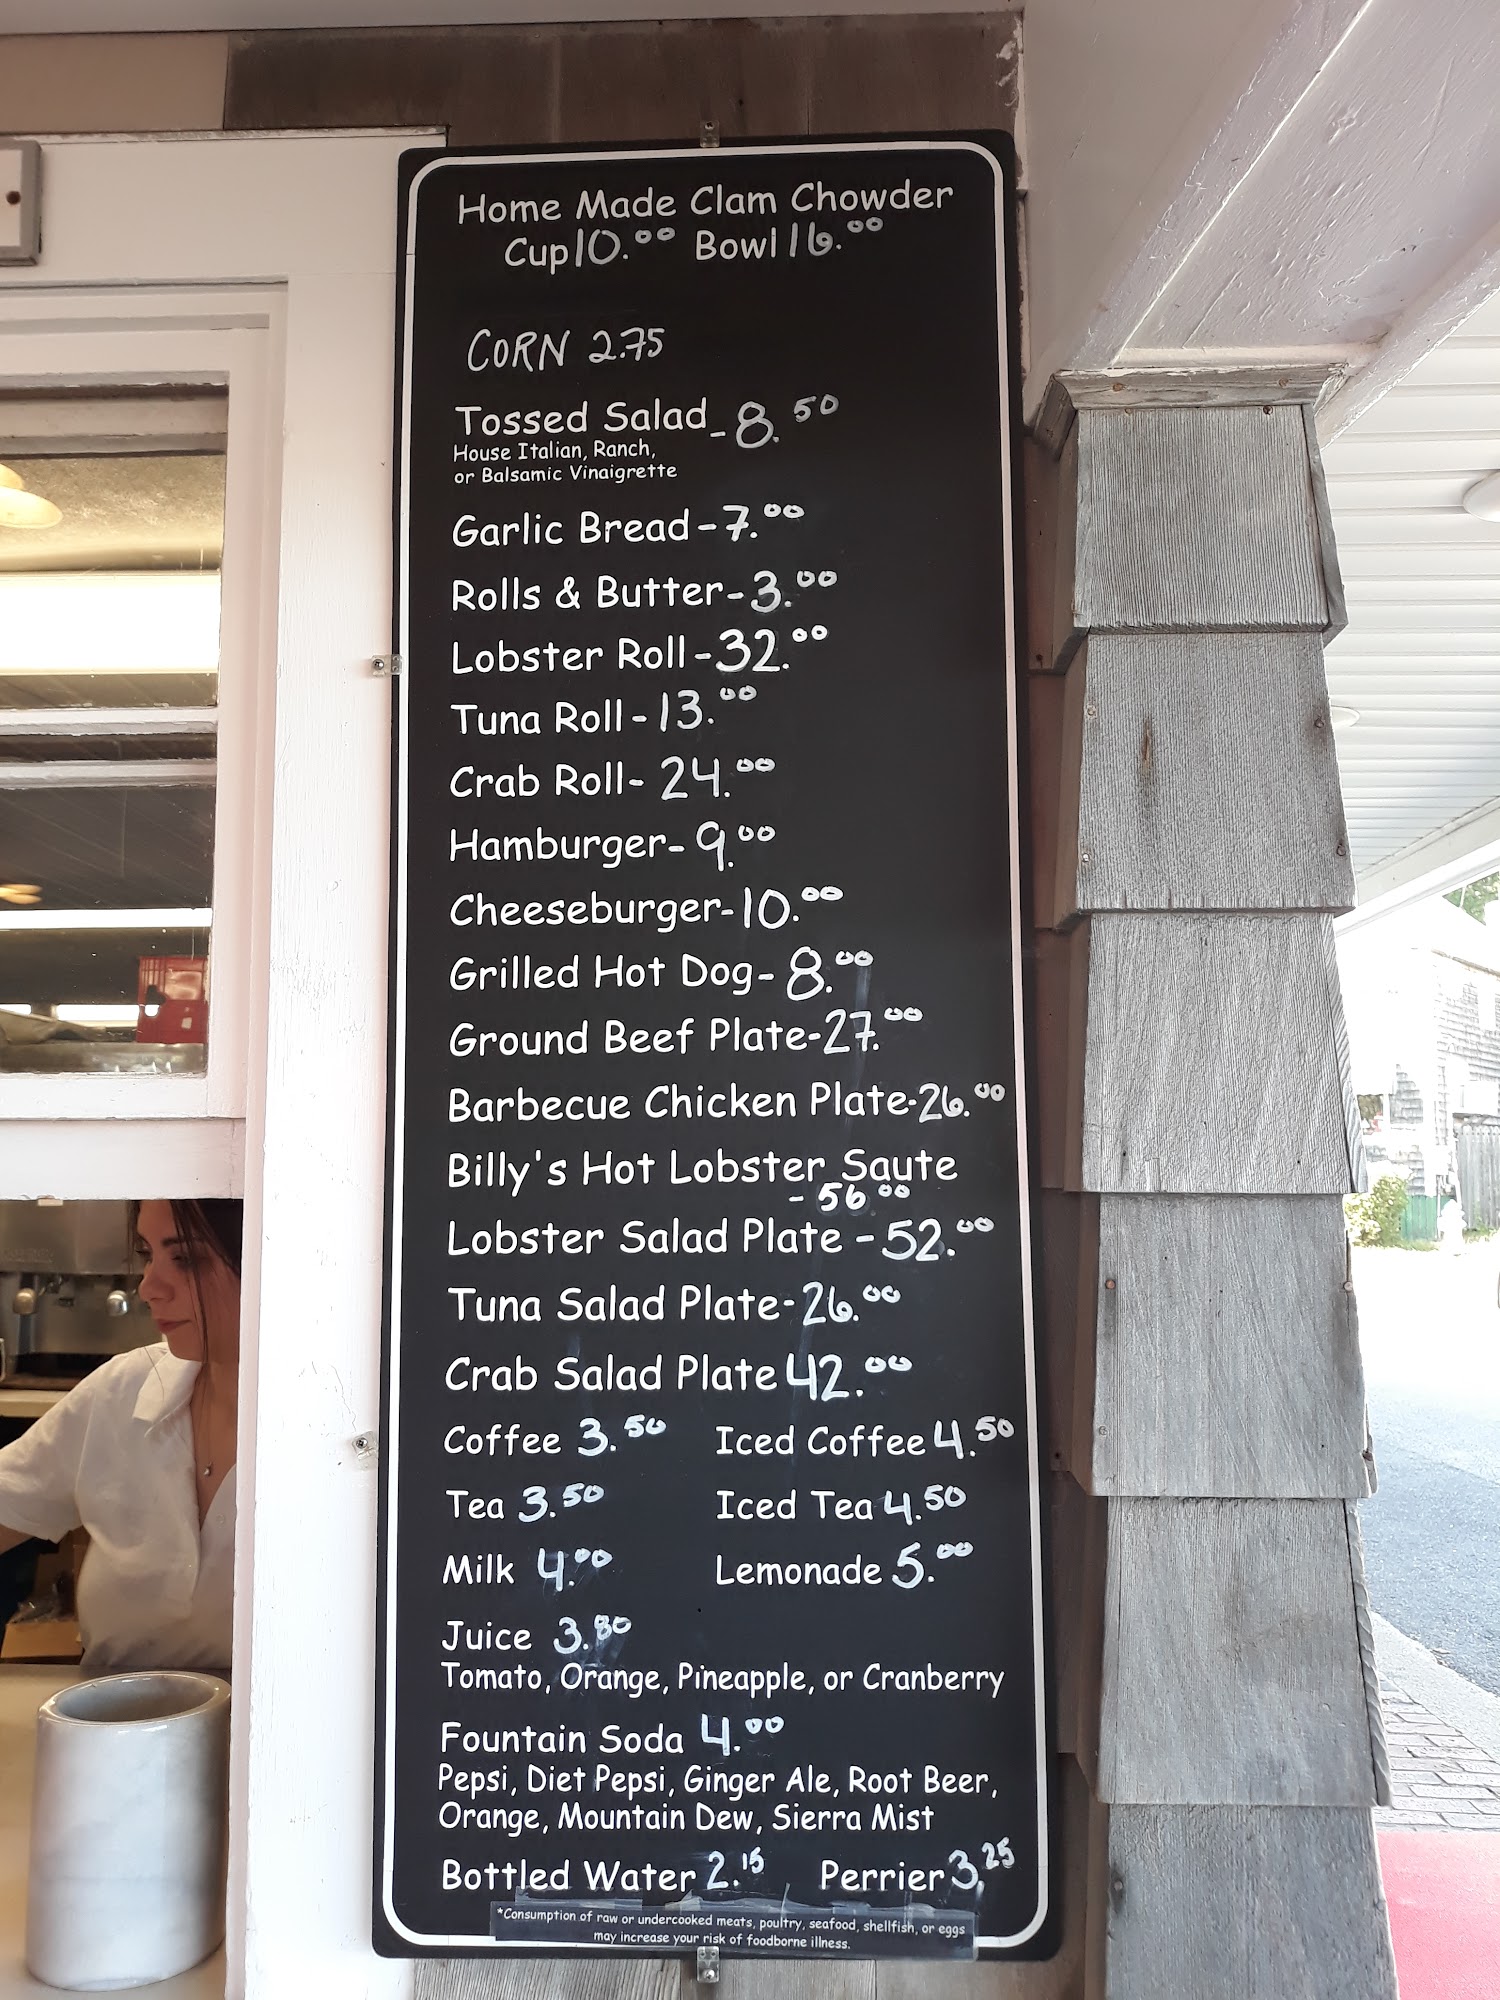 Home Made Clam Chowder
Cup 10.00 Bowl 16.00
CORN 2.75
Tossed Salad - 8.50
House Italian, Ranch,
or Balsamic Vinaigrette
Garlic Bread - 7.00
Rolls & Butter - 3.00
Lobster Roll - 32.00
Tuna Roll - 13.00
Crab Roll - 24.00
Hamburger - 9.00
Cheeseburger - 10.00
Grilled Hot Dog - 8.00
Ground Beef Plate - 27.00
Barbecue Chicken Plate - 26.00
Billy's Hot Lobster Saute
- 56.00
Lobster Salad Plate - 52.00
Tuna Salad Plate - 26.00
Crab Salad Plate 42.00
Coffee 3.50 Iced Coffee 4.50
Tea 3.50 Iced Tea 4.50
Milk 4.00 Lemonade 5.00
Juice 3.80
Tomato, Orange, Pineapple, or Cranberry
Fountain Soda 4.00
Pepsi, Diet Pepsi, Ginger Ale, Root Beer,
Orange, Mountain Dew, Sierra Mist
Bottled Water 2.15 Perrier 3.25
*Consumption of raw or undercooked meats, poultry, seafood, shellfish, or eggs
may increase your risk of foodborne illness.